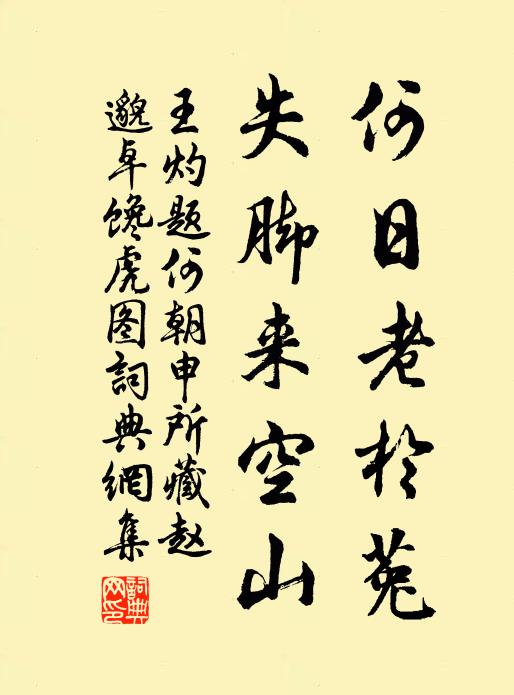 何日老於菟
失脚来空山
王灼题何朝申所藏赵
邈卓馋虎图詞典網集
詞典网印